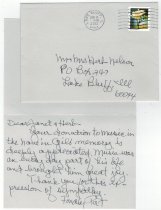 Mr & Mrs Herb Nelson
PO Box 747
Lake Bluff, Ill
60044
Dear Janet & Herb—
Your donation to music in
the name of Gil's memory is
deeply appreciated. Music was
an everyday part of his life
and brought him great joy.
Thank you for this ex-
pression of sympathy.
Fondly, Pat